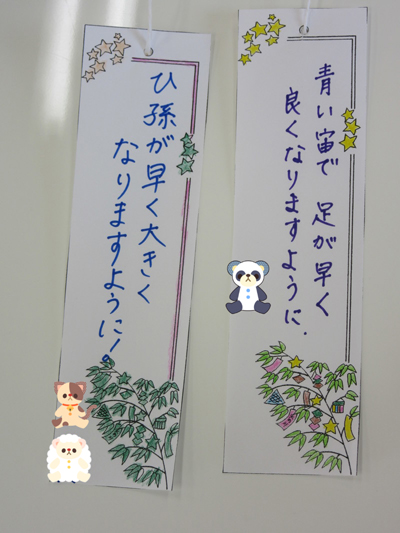 青い宙で 足が早く
良くなりますように.
ひ孫が早く大きく
なりますように!